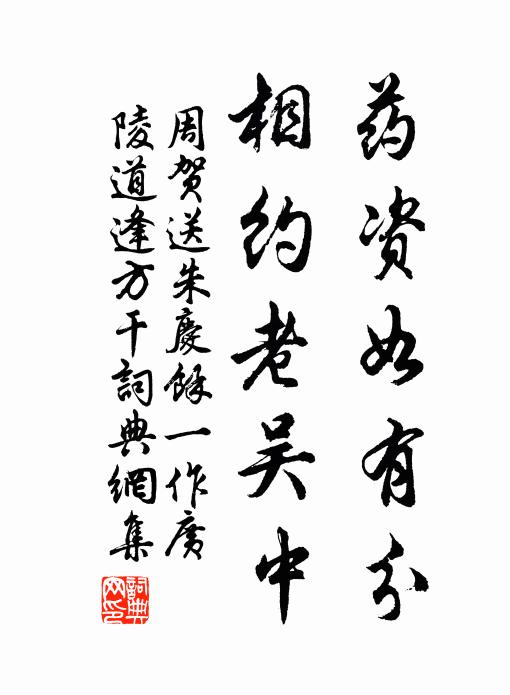 药资如有分
相约老吴中
周贺送朱慶餘一作廣
陵道逢方干詞典網集
詞典网印